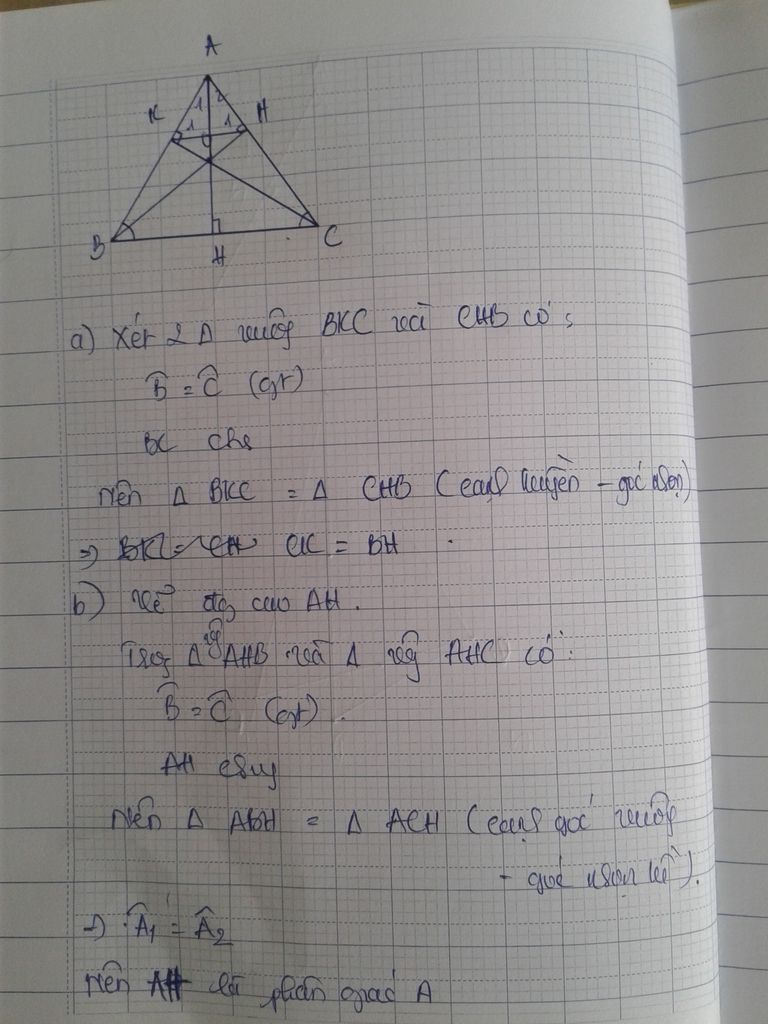 A
K
H
1
2
1
1
B
C
H
a) Xét 2 Δ vuông BKC và CHB có:
B̂ = Ĉ (gt)
BC chg
nên Δ BKC = Δ CHB (cạnh huyền - góc nhọn)
=> CK = BH.
b) kẻ đg cao AH.
Trog Δ vg AHB và Δ vg AHC có:
B̂ = Ĉ (gt).
AH chug
Nên Δ ABH = Δ ACH (cạnh góc vuông
- góc nhọn kề).
=> Â1 = Â2
Nên AH là phân giác A